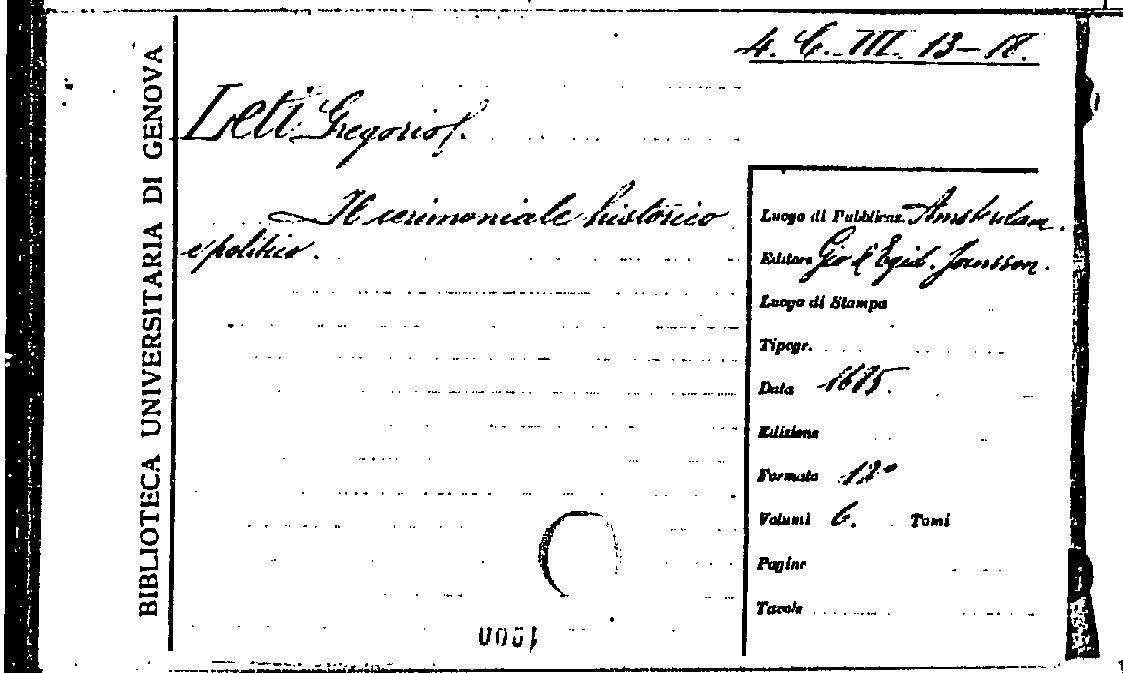 4. C. III. 13-18.
BIBLIOTECA UNIVERSITARIA DI GENOVA
Leti Gregorio.
Il cerimoniale historico
e politico.
Luogo di Pubblicaz. Amsterdam.
Editore Gio e Egid. Jansson.
Luogo di Stampa
Tipogr.
Data 1685.
Edizione
Formato 12°
Volumi 6. Tomi
Pagine
Tavole